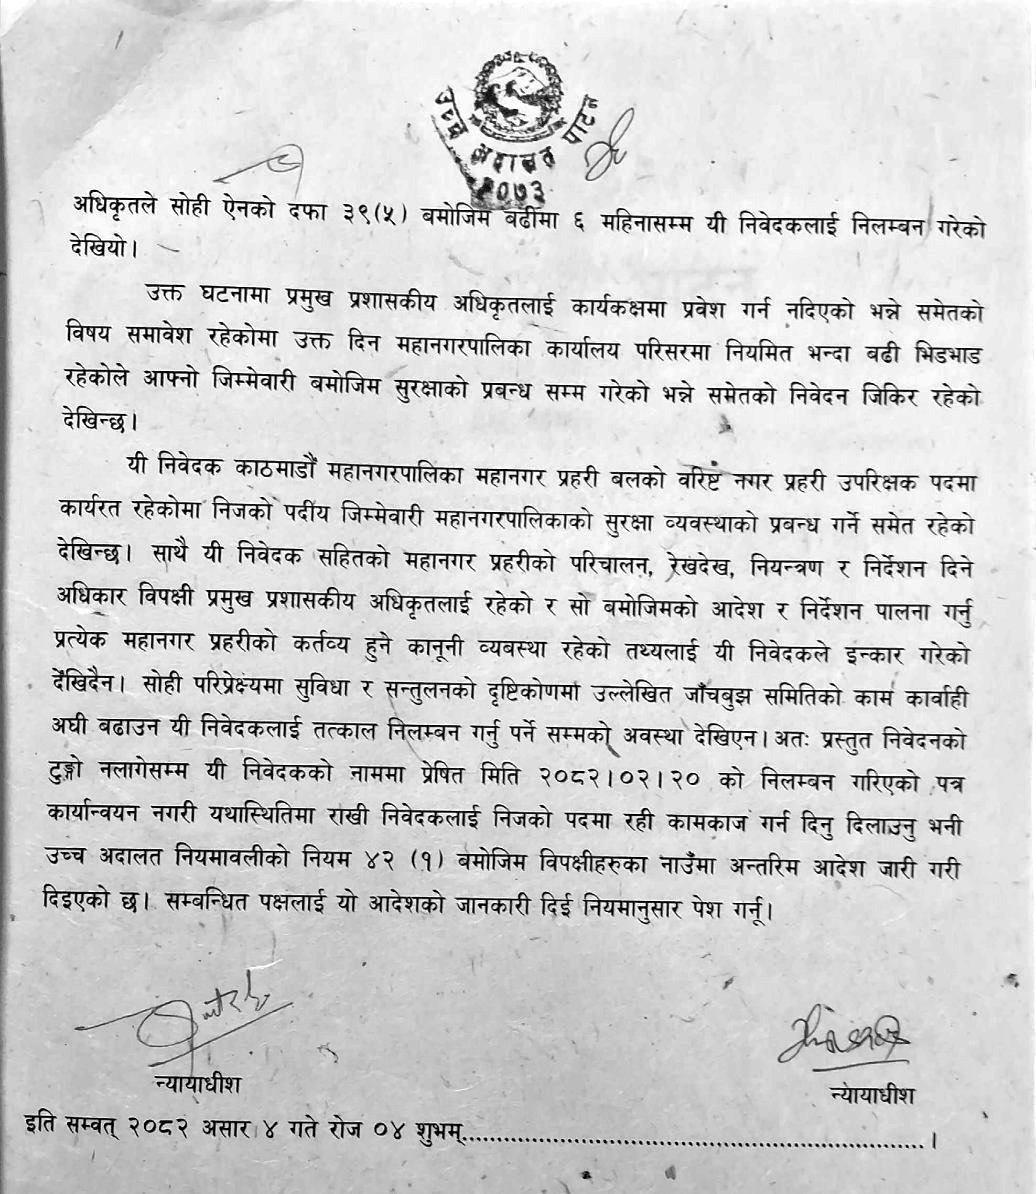 उच्च अदालत पाटन
२०७३
अधिकृतले सोही ऐनको दफा ३९(५) बमोजिम बढीमा ६ महिनासम्म यी निवेदकलाई निलम्बन गरेको
देखियो।
उक्त घटनामा प्रमुख प्रशासकीय अधिकृतलाई कार्यकक्षमा प्रवेश गर्न नदिएको भन्ने समेतको
विषय समावेश रहेकोमा उक्त दिन महानगरपालिका कार्यालय परिसरमा नियमित भन्दा बढी भिडभाड
रहेकोले आफ्नो जिम्मेवारी बमोजिम सुरक्षाको प्रबन्ध सम्म गरेको भन्ने समेतको निवेदन जिकिर रहेको
देखिन्छ।
यी निवेदक काठमाडौं महानगरपालिका महानगर प्रहरी बलको वरिष्ट नगर प्रहरी उपरिक्षक पदमा
कार्यरत रहेकोमा निजको पदीय जिम्मेवारी महानगरपालिकाको सुरक्षा व्यवस्थाको प्रबन्ध गर्ने समेत रहेको
देखिन्छ। साथै यी निवेदक सहितको महानगर प्रहरीको परिचालन, रेखदेख, नियन्त्रण र निर्देशन दिने
अधिकार विपक्षी प्रमुख प्रशासकीय अधिकृतलाई रहेको र सो बमोजिमको आदेश र निर्देशन पालना गर्नु
प्रत्येक महानगर प्रहरीको कर्तव्य हुने कानूनी व्यबस्था रहेको तथ्यलाई यी निवेदकले इन्कार गरेको
देखिदैन। सोही परिप्रेक्ष्यमा सुविधा र सन्तुलनको दृष्टिकोणमा उल्लेखित जाँचबुझ समितिको काम कार्वाही
अघी बढाउन यी निवेदकलाई तत्काल निलम्बन गर्नु पर्ने सम्मको अवस्था देखिएन। अतः प्रस्तुत निवेदनको
टुङ्गो नलागेसम्म यी निवेदकको नाममा प्रेषित मिति २०८२।०२।२० को निलम्बन गरिएको पत्र
कार्यान्वयन नगरी यथास्थितिमा राखी निवेदकलाई निजको पदमा रही कामकाज गर्न दिनु दिलाउनु भनी
उच्च अदालत नियमावलीको नियम ४२ (१) बमोजिम विपक्षीहरुका नाउँमा अन्तरिम आदेश जारी गरी
दिइएको छ। सम्बन्धित पक्षलाई यो आदेशको जानकारी दिई नियमानुसार पेश गर्नू।
न्यायाधीश
न्यायाधीश
इति सम्वत् २०८२ असार ४ गते रोज ०४ शुभम्.....................................................................।